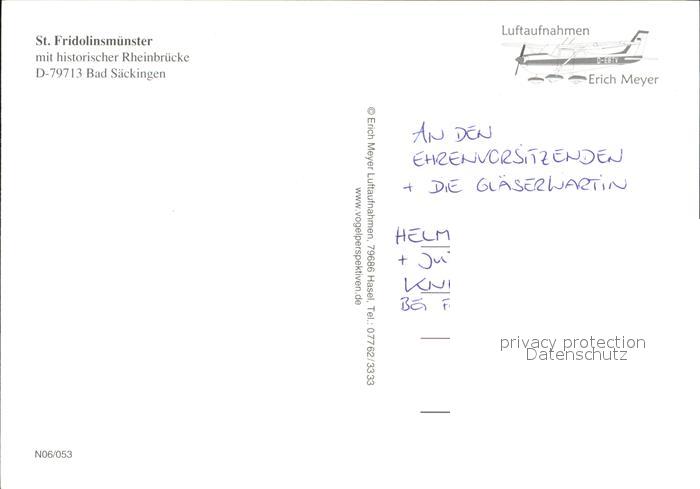 St. Fridolinsmünster
mit historischer Rheinbrücke
D-79713 Bad Säckingen
Luftaufnahmen
D-EBTV
Erich Meyer
© Erich Meyer Luftaufnahmen, 79686 Hasel, Tel.: 07762/3333
www.vogelperspektiven.de
AN DEN
EHRENVORSITZENDEN
+ DIE GLÄSERWARTIN
HELM
+ JU
KNI
BEI F
privacy protection
Datenschutz
N06/053